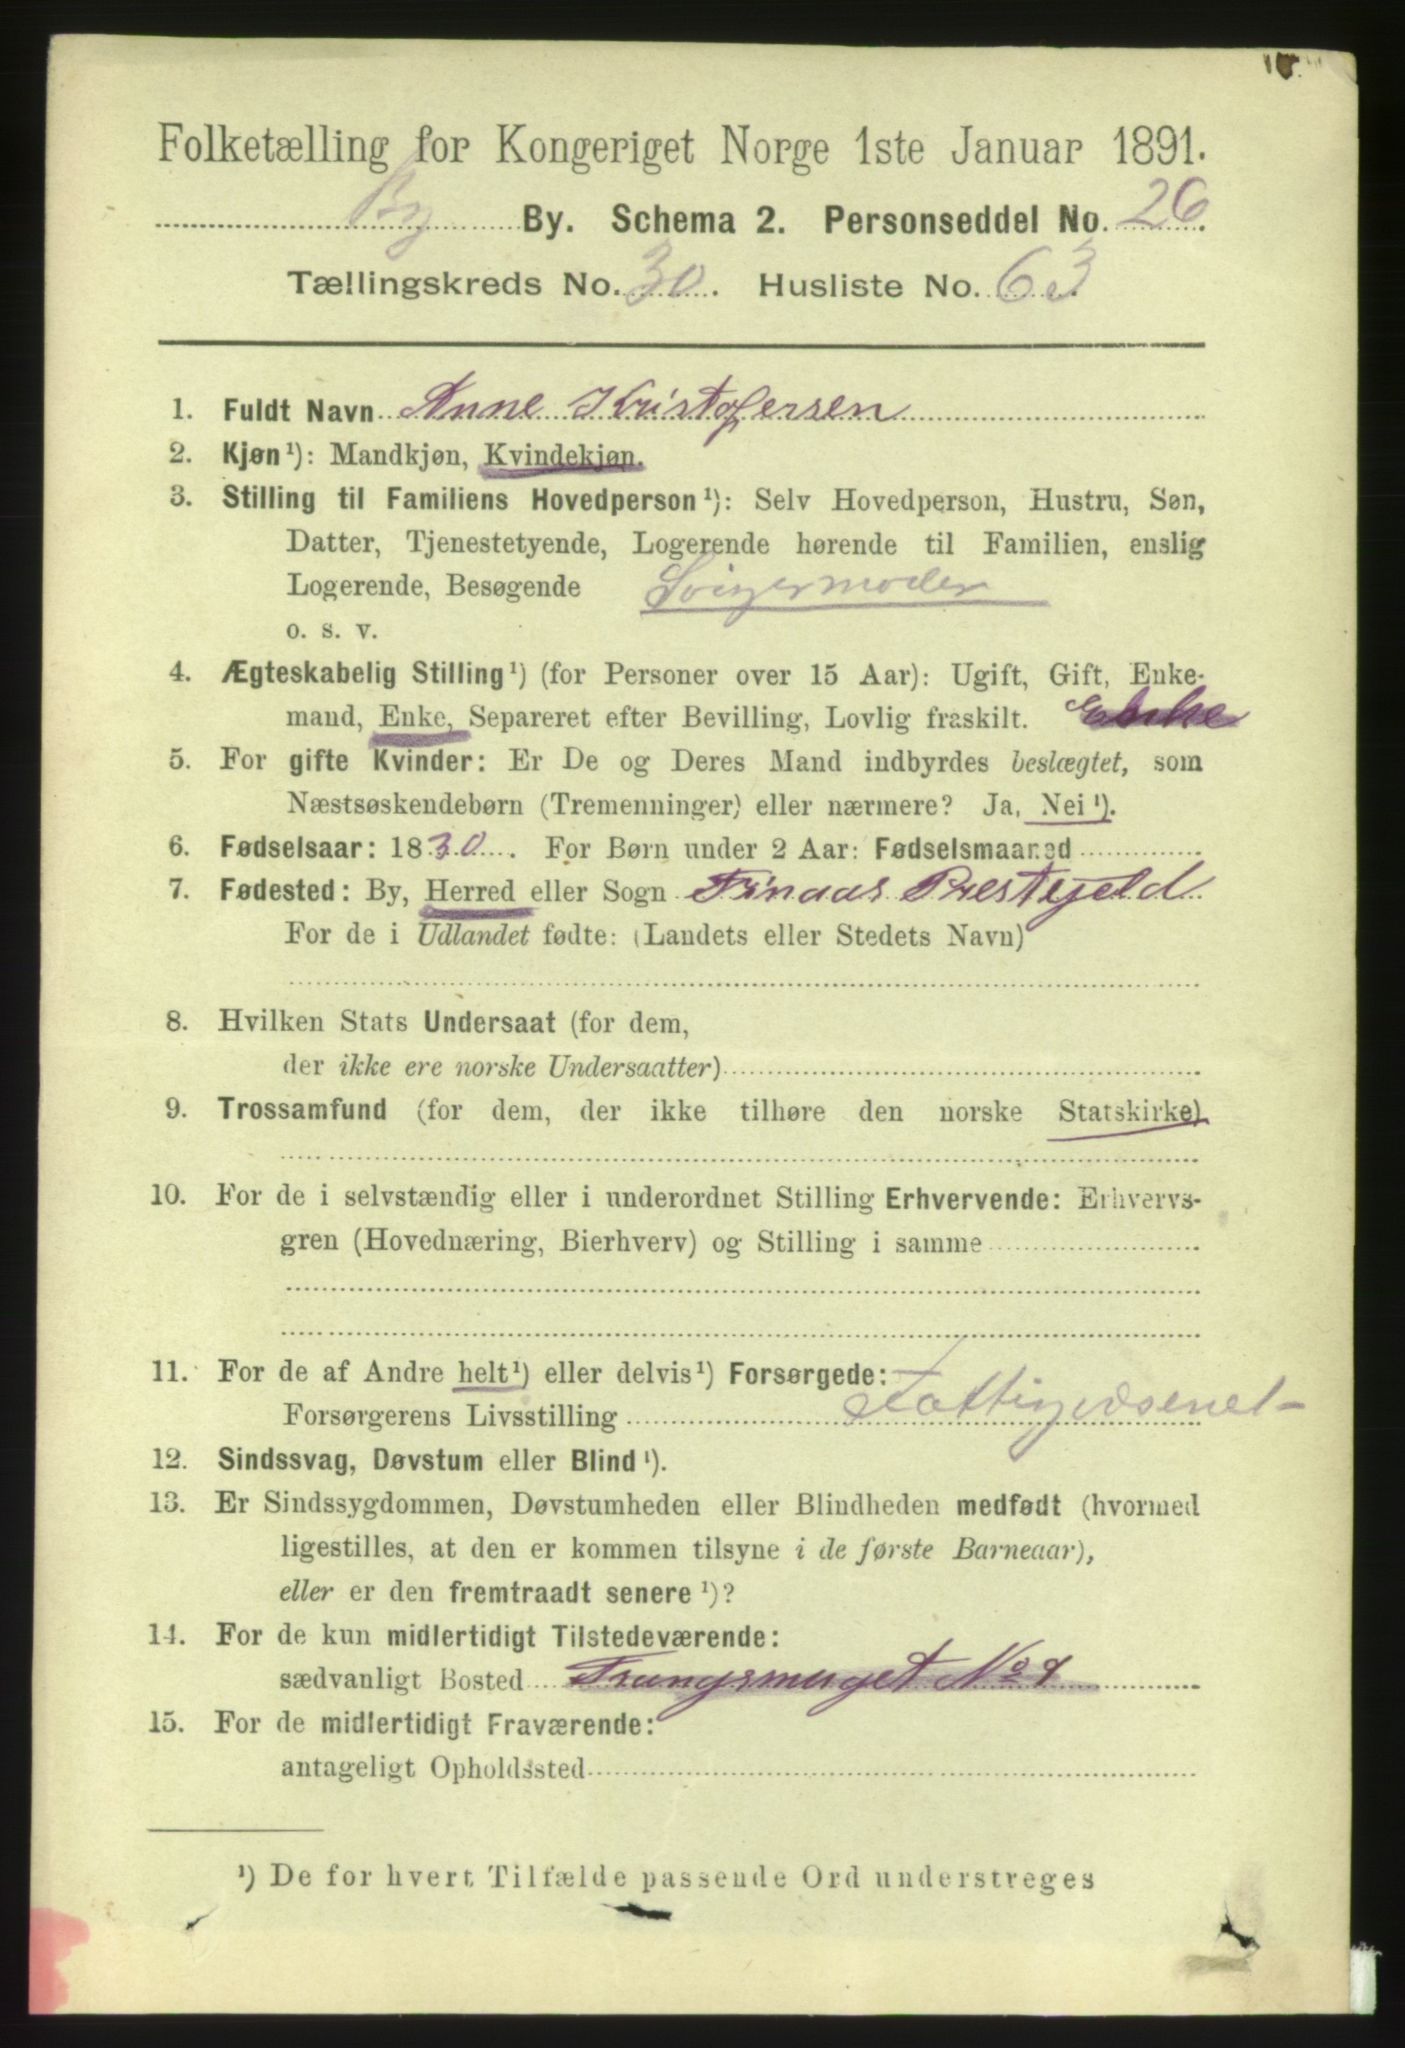 Folketælling for Kongeriget Norge 1ste Januar 1891.
By By. Schema 2. Personseddel No. 26.
Tællingskreds No. 30. Husliste No. 63.
1. Fuldt Navn Anne Kristofersen
2. Kjøn¹): Mandkjøn, Kvindekjøn.
3. Stilling til Familiens Hovedperson¹): Selv Hovedperson, Hustru, Søn,
Datter, Tjenestetyende, Logerende hørende til Familien, enslig
Logerende, Besøgende Svigermoder
o. s. v.
4. Ægteskabelig Stilling¹) (for Personer over 15 Aar): Ugift, Gift, Enke-
mand, Enke, Separeret efter Bevilling, Lovlig fraskilt. Enke
5. For gifte Kvinder: Er De og Deres Mand indbyrdes beslægtet, som
Næstsøskendebørn (Tremenninger) eller nærmere? Ja, Nei¹).
6. Fødselsaar: 1830. For Børn under 2 Aar: Fødselsmaaned
7. Fødested: By, Herred eller Sogn Finaas Prestegjeld
For de i Udlandet fødte: (Landets eller Stedets Navn)
8. Hvilken Stats Undersaat (for dem,
der ikke ere norske Undersaatter)
9. Trossamfund (for dem, der ikke tilhøre den norske Statskirke)
10. For de i selvstændig eller i underordnet Stilling Erhvervende: Erhvervs-
gren (Hovednæring, Bierhverv) og Stilling i samme
11. For de af Andre helt¹) eller delvis¹) Forsørgede:
Forsørgerens Livsstilling Fattigvæsenet-
12. Sindssvag, Døvstum eller Blind¹).
13. Er Sindssygdommen, Døvstumheden eller Blindheden medfødt (hvormed
ligestilles, at den er kommen tilsyne i de første Barneaar),
eller er den fremtraadt senere¹)?
14. For de kun midlertidigt Tilstedeværende:
sædvanligt Bosted Trangsmuget No
15. For de midlertidigt Fraværende:
antageligt Opholdssted
¹) De for hvert Tilfælde passende Ord understreges